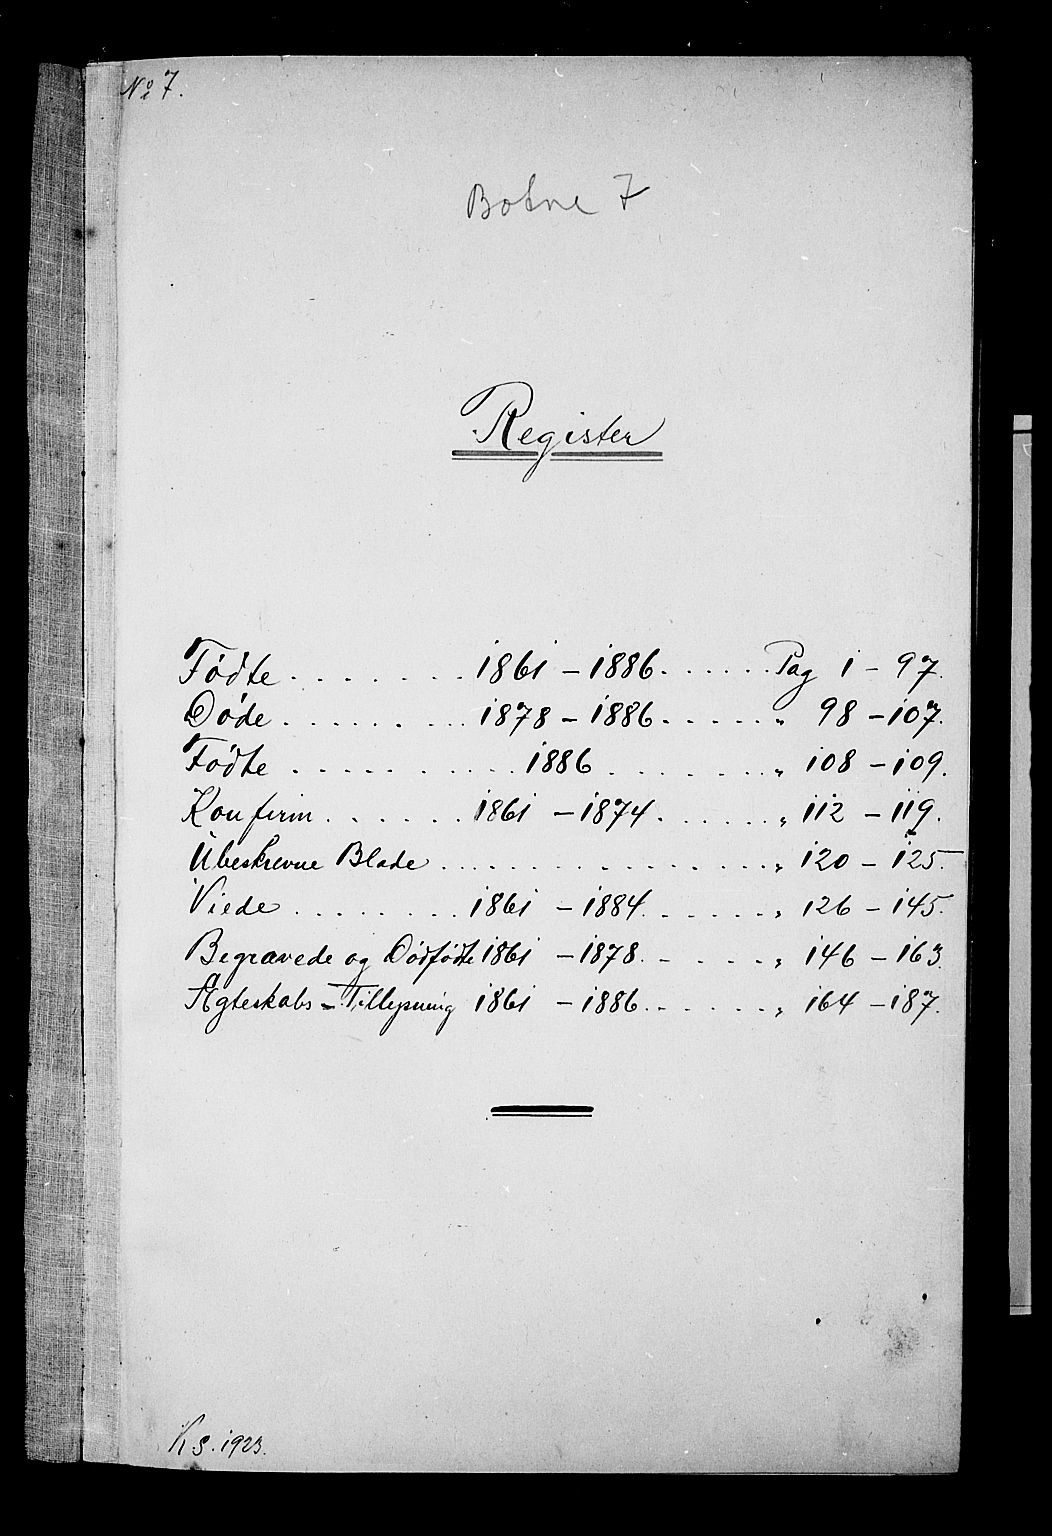 No 7.
Botne 7
Register
Fødte . . . . . . . . 1861 - 1886. . . . . . Pag 1 - 97.
Døde . . . . . . . . 1878 - 1886. . . . . . " 98 - 107.
Fødte . . . . . . . . . . 1886 . . . . . . . . " 108 - 109.
Konfirm. . . . . . . 1861 - 1874. . . . . . " 112 - 119.
Ubeskrevne Blade . . . . . . . . . . . . . . . " 120 - 125.
Viede . . . . . . . . 1861 - 1884. . . . . . " 126 - 145.
Begravede og Dødfødte 1861 - 1878. . . . . . " 146 - 163.
Ægteskabs-Tillysning 1861 - 1886. . . . . . " 164 - 187.
K S. 1923.